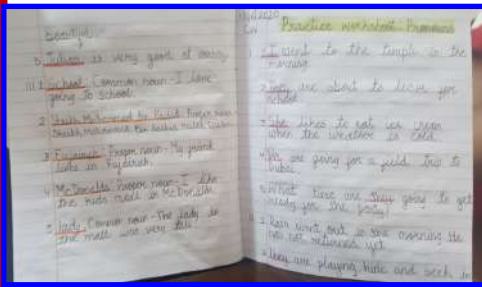 beautiful
5. is very good at
III 1. School: Common noun - I love
going to school.
2. Sheikh Mohammed bin Rashid: Proper noun
3. Fujairah: Proper noun - My grand
in Fujairah.
4. McDonalds: Proper noun - I like
the kids meal in McDonalds.
5. lady: Common noun - The lady in
the mall was very tall.
CW
Practice worksheet Pronouns
1. I went to the temple in the
morning.
2. They are about to leave for
school.
3. She likes to eat ice cream
when the weather is cold.
4. are going for a field trip to
Dubai.
5. What time are they going to get
ready for the party?
II 1. went out in the morning. He
has not returned yet.
2. They are playing hide and seek in